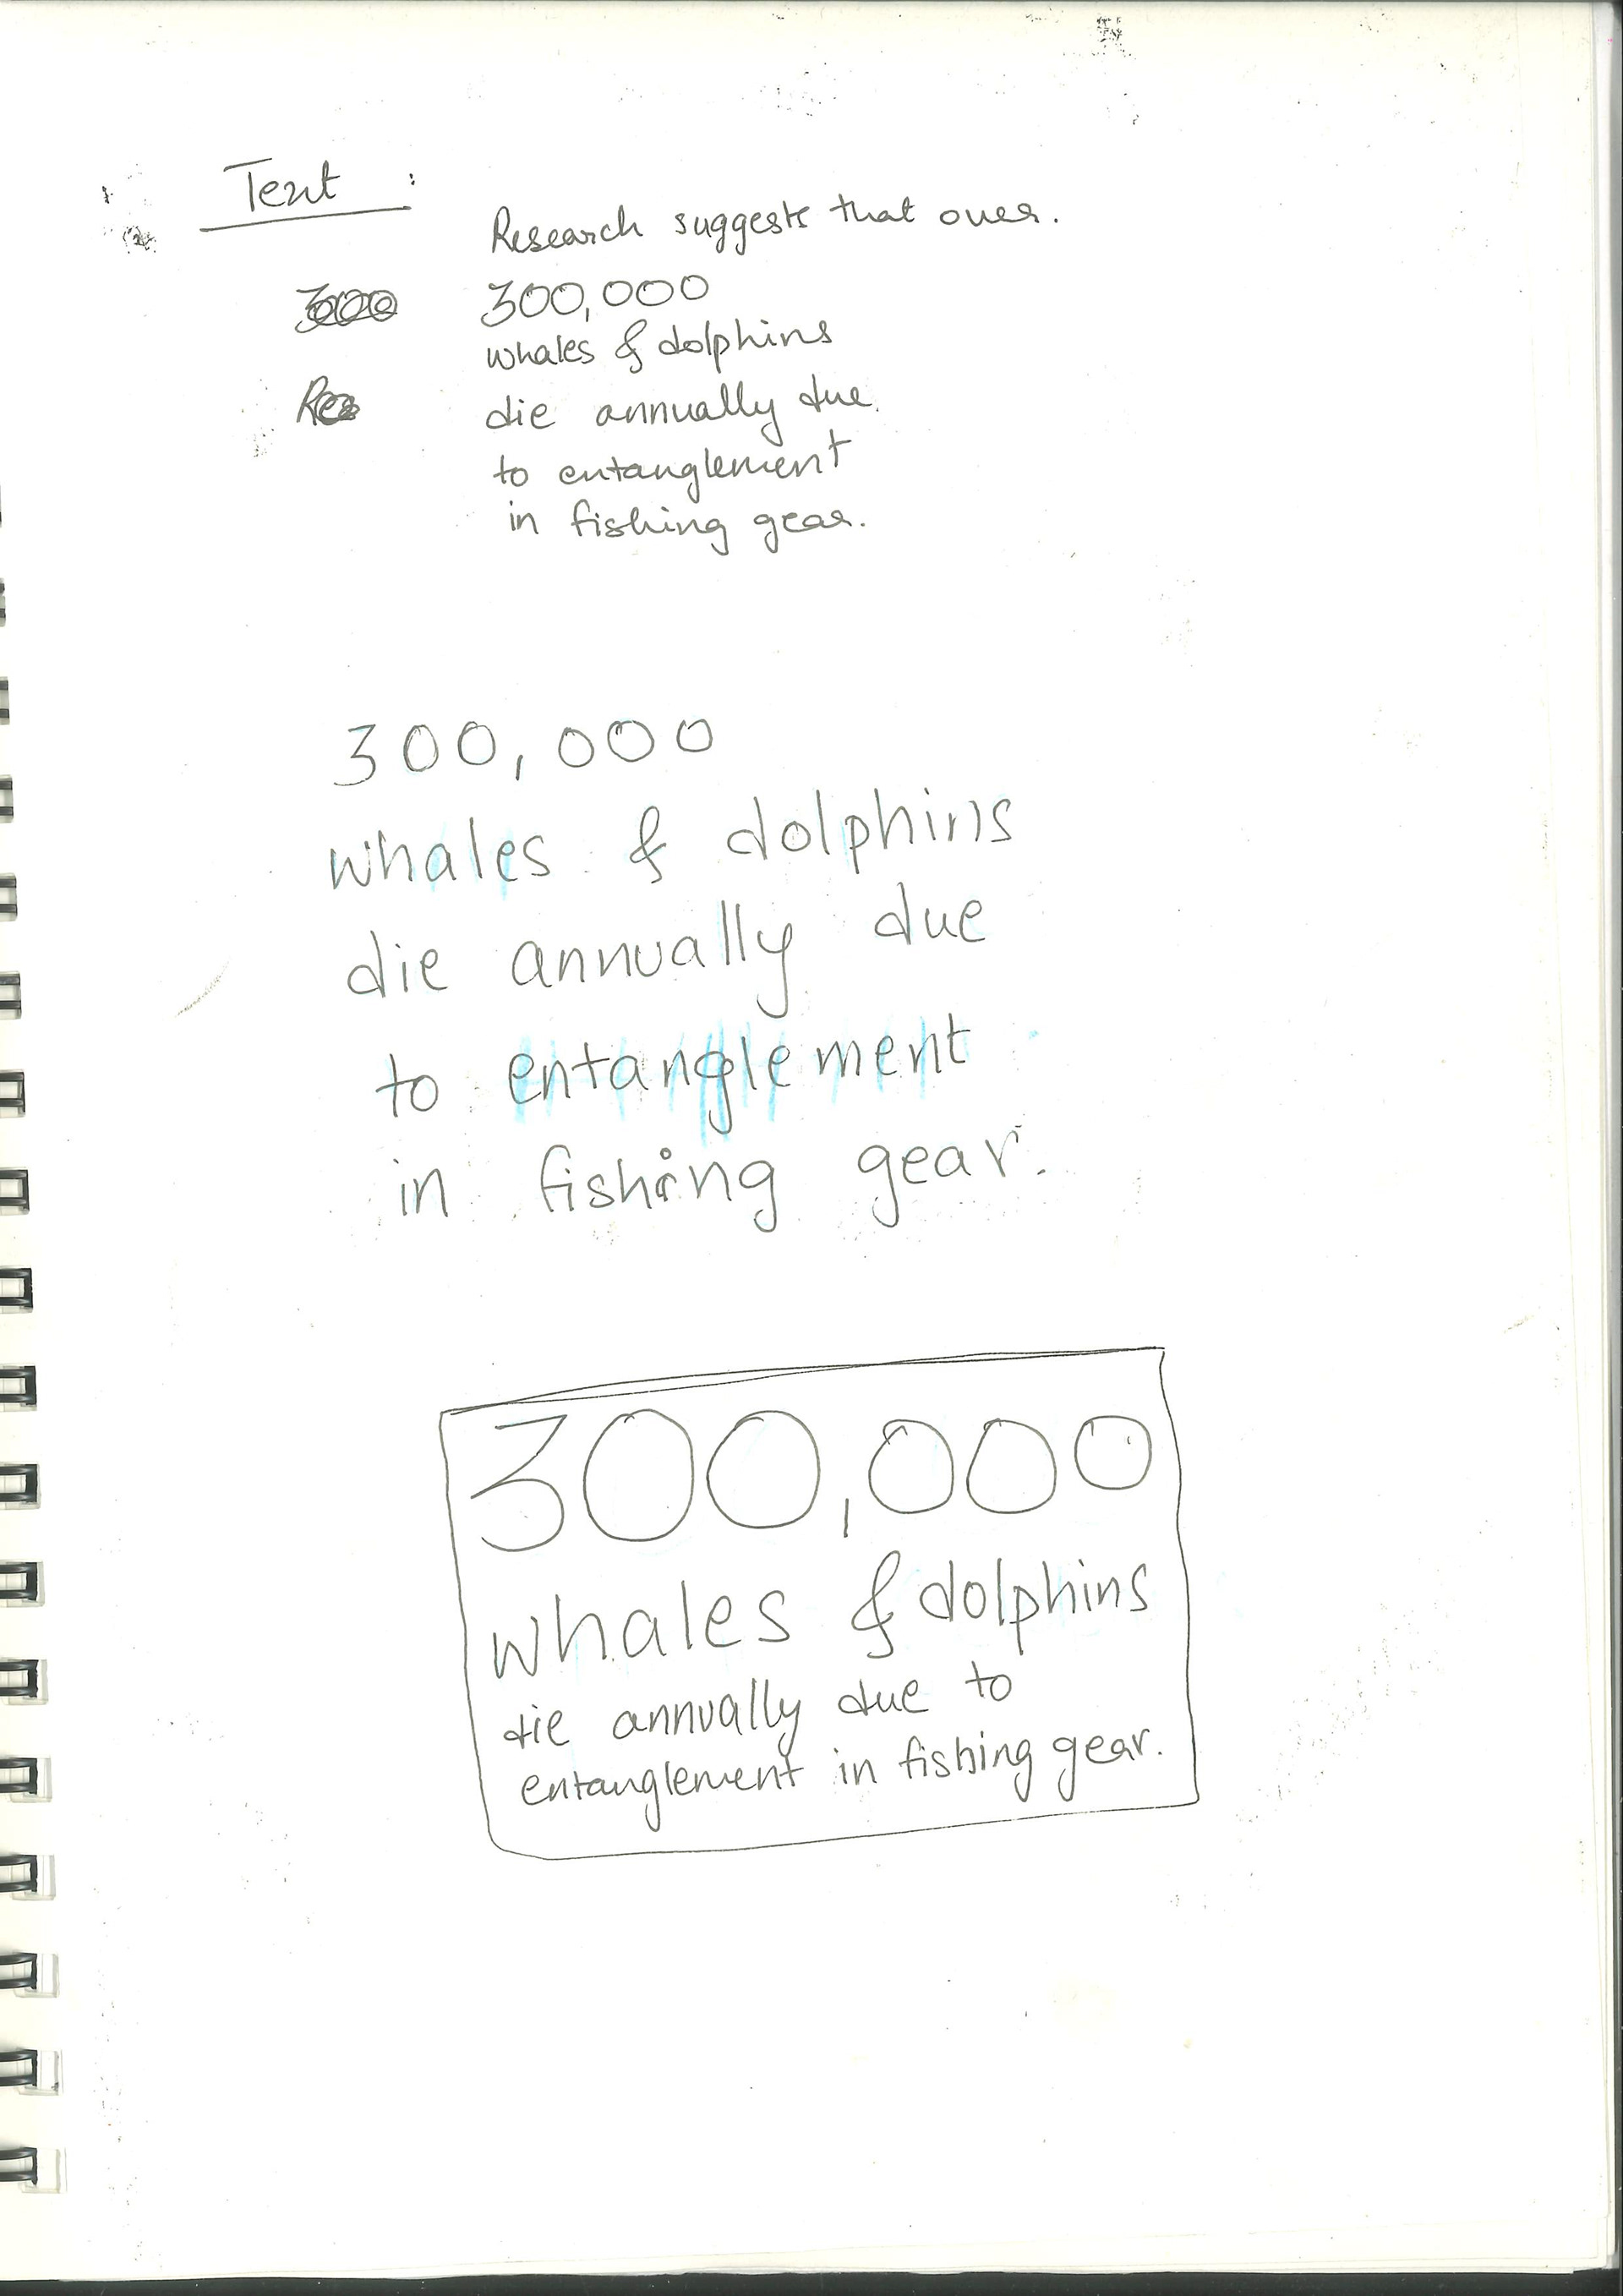 Text :
Research suggests that over.
300,000
whales & dolphins
die annually due.
to entanglement
in fishing gear.
300,000
whales & dolphins
die annually due
to entanglement
in fishing gear.
300,000
whales & dolphins
die annually due to
entanglement in fishing gear.